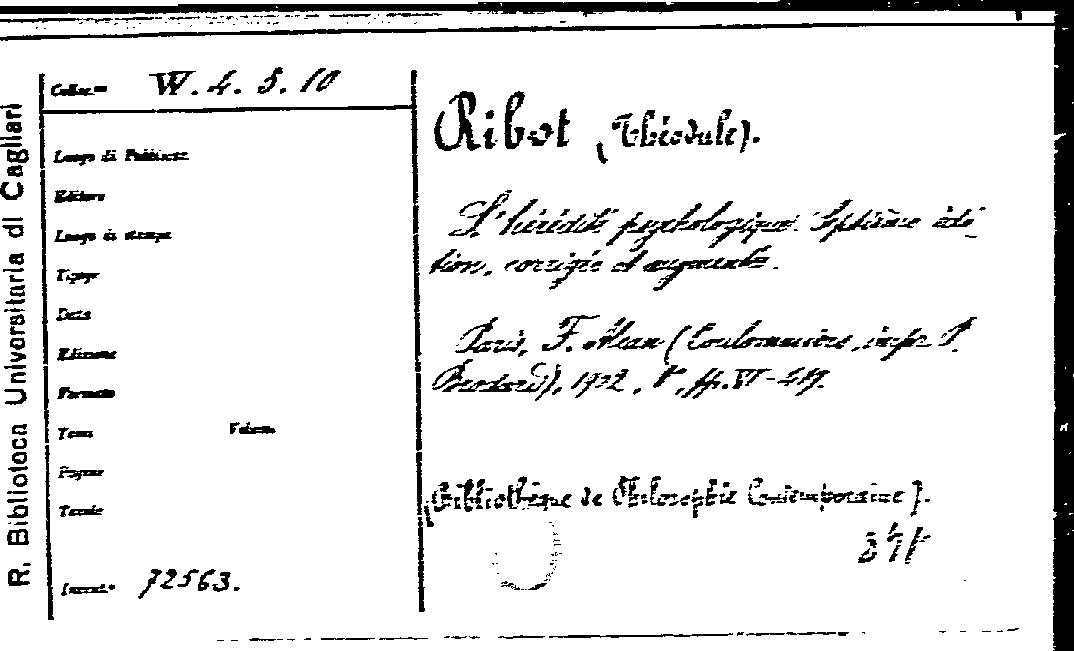 R. Biblioteca Universitaria di Cagliari
Colloc.ne W. 4. 5. 10
Luogo di Pubblicaz.
Editore
Luogo di stampa
Tipogr.
Data
Edizione
Formato
Tomi Volumi
Pagine
Tavole
Invent.° 72563.
Ribot (Théodule).
L'hérédité psychologique. Septième édi-
tion, corrigée et augmentée.
Paris, F. Alcan (Coulommiers, impr. P.
Brodard), 1902, 8°, pp. VI-419.
(Bibliothèque de Philosophie Contemporaine).